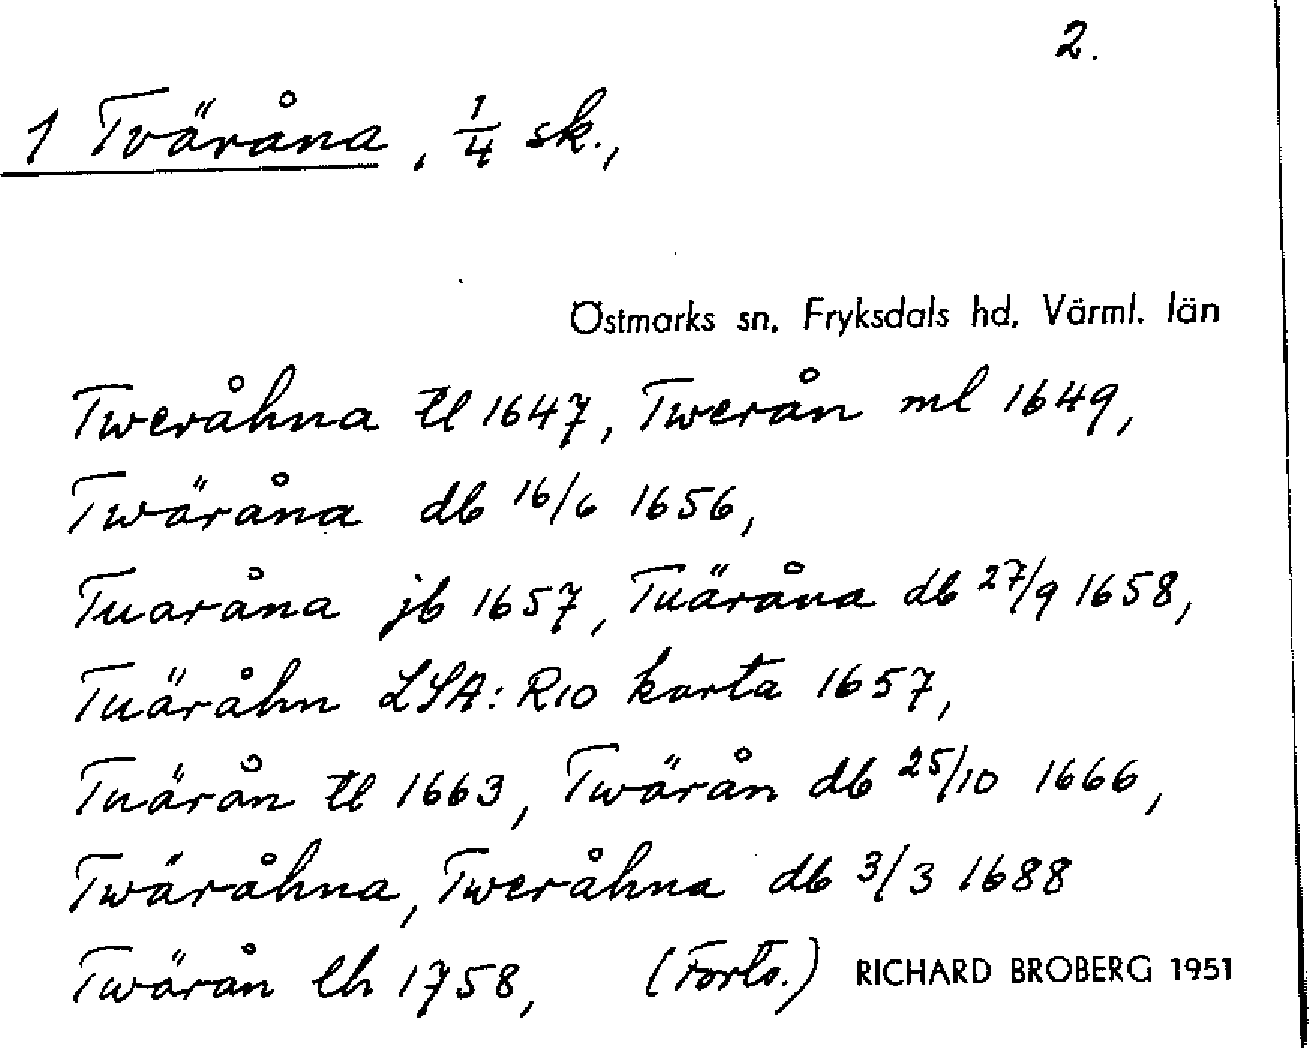 2.
1 Tväråna, 1/4 sk.,
Östmarks sn. Fryksdals hd. Värml. län
Tweråhna tl 1647, Twerån ml 1649,
Twäråna db 16/6 1656,
Tuaråna jb 1657, Tuäråna db 27/9 1658,
Tuäråhn LSA: R10 karta 1657,
Tuärån tl 1663, Twärån db 25/10 1666,
Twäråhna, Tweråhna db 3/3 1688
Twärån lh 1758, (Forts.) RICHARD BROBERG 1951